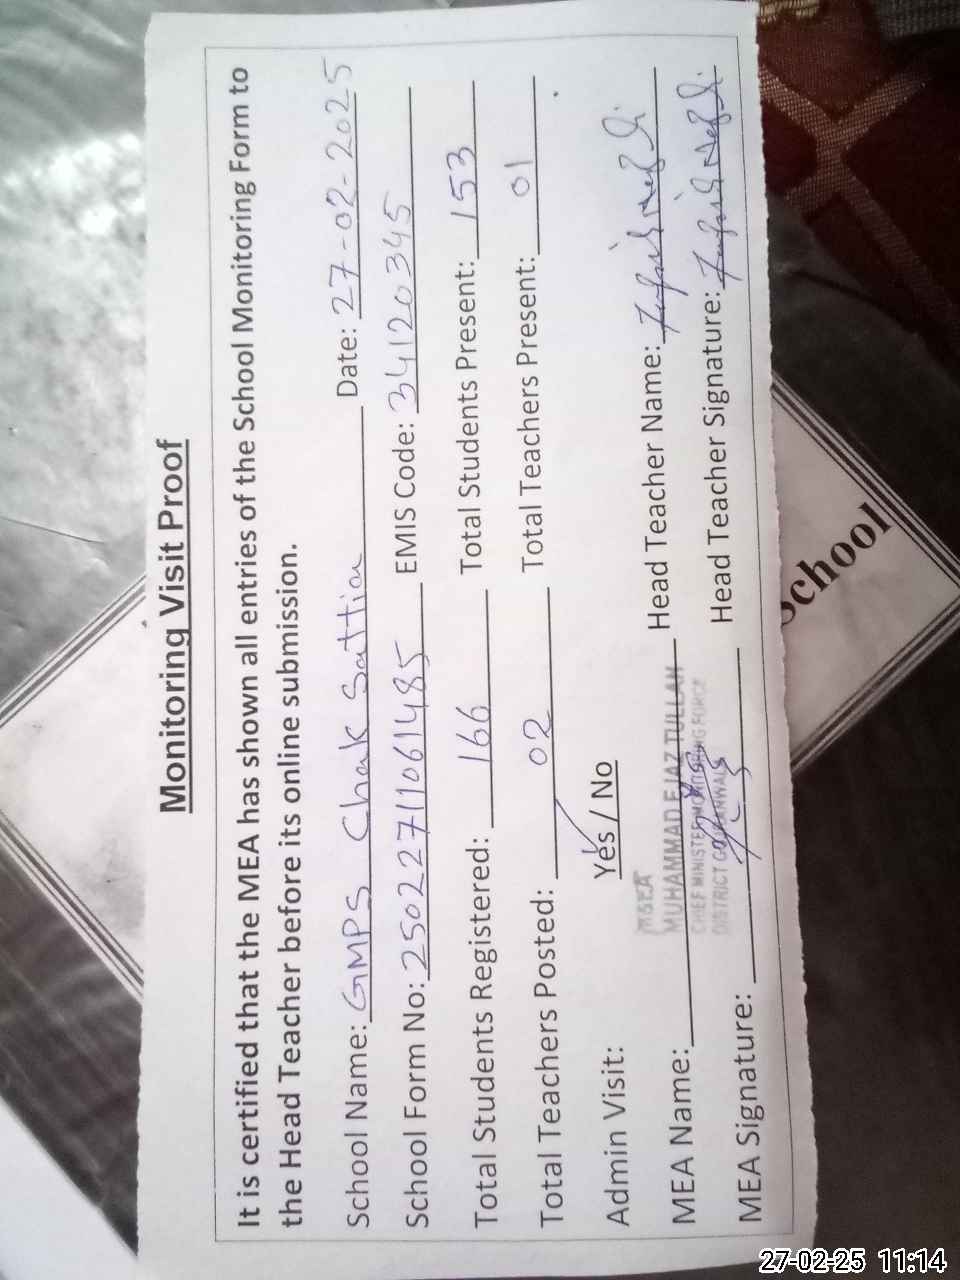 Monitoring Visit Proof
It is certified that the MEA has shown all entries of the School Monitoring Form to
the Head Teacher before its online submission.
School Name: GMPS Chak Sattia Date: 27-02-2025
School Form No: 25022711061485 EMIS Code: 34120345
Total Students Registered: 166 Total Students Present: 153
Total Teachers Posted: 02 Total Teachers Present: 01
Admin Visit: Yes / No
MEA
MEA Name: MUHAMMAD EJAZ TULLAH Head Teacher Name:
CHIEF MINISTER MONITORING FORCE
DISTRICT GUJRANWALA
MEA Signature: Head Teacher Signature:
School
27-02-25 11:14